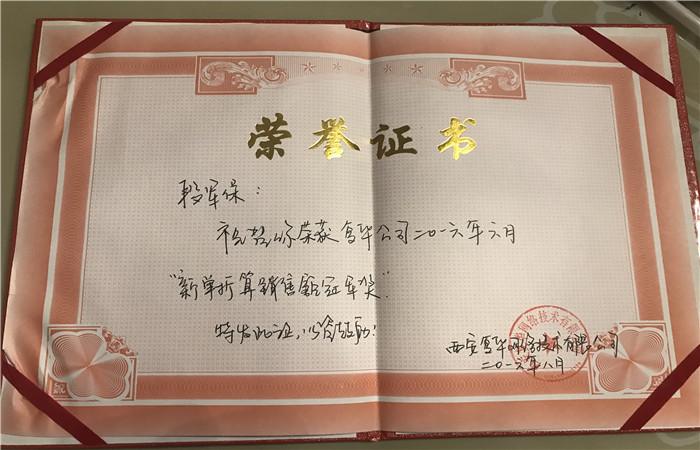 荣誉证书
段军保：
祝贺你荣获笃华公司二〇一六年六月
“新单折算销售额冠军奖”
特发此证，以资鼓励！
网络技术有限
西安笃华网络技术有限公司
二〇一六年八月